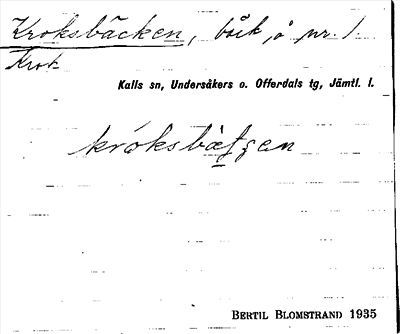 Kroksbäcken, bäck, å nr. 1.
Krok
Kalls sn, Undersåkers o. Offerdals tg, Jämtl. l.
króksbä̀tʒen
BERTIL BLOMSTRAND 1935